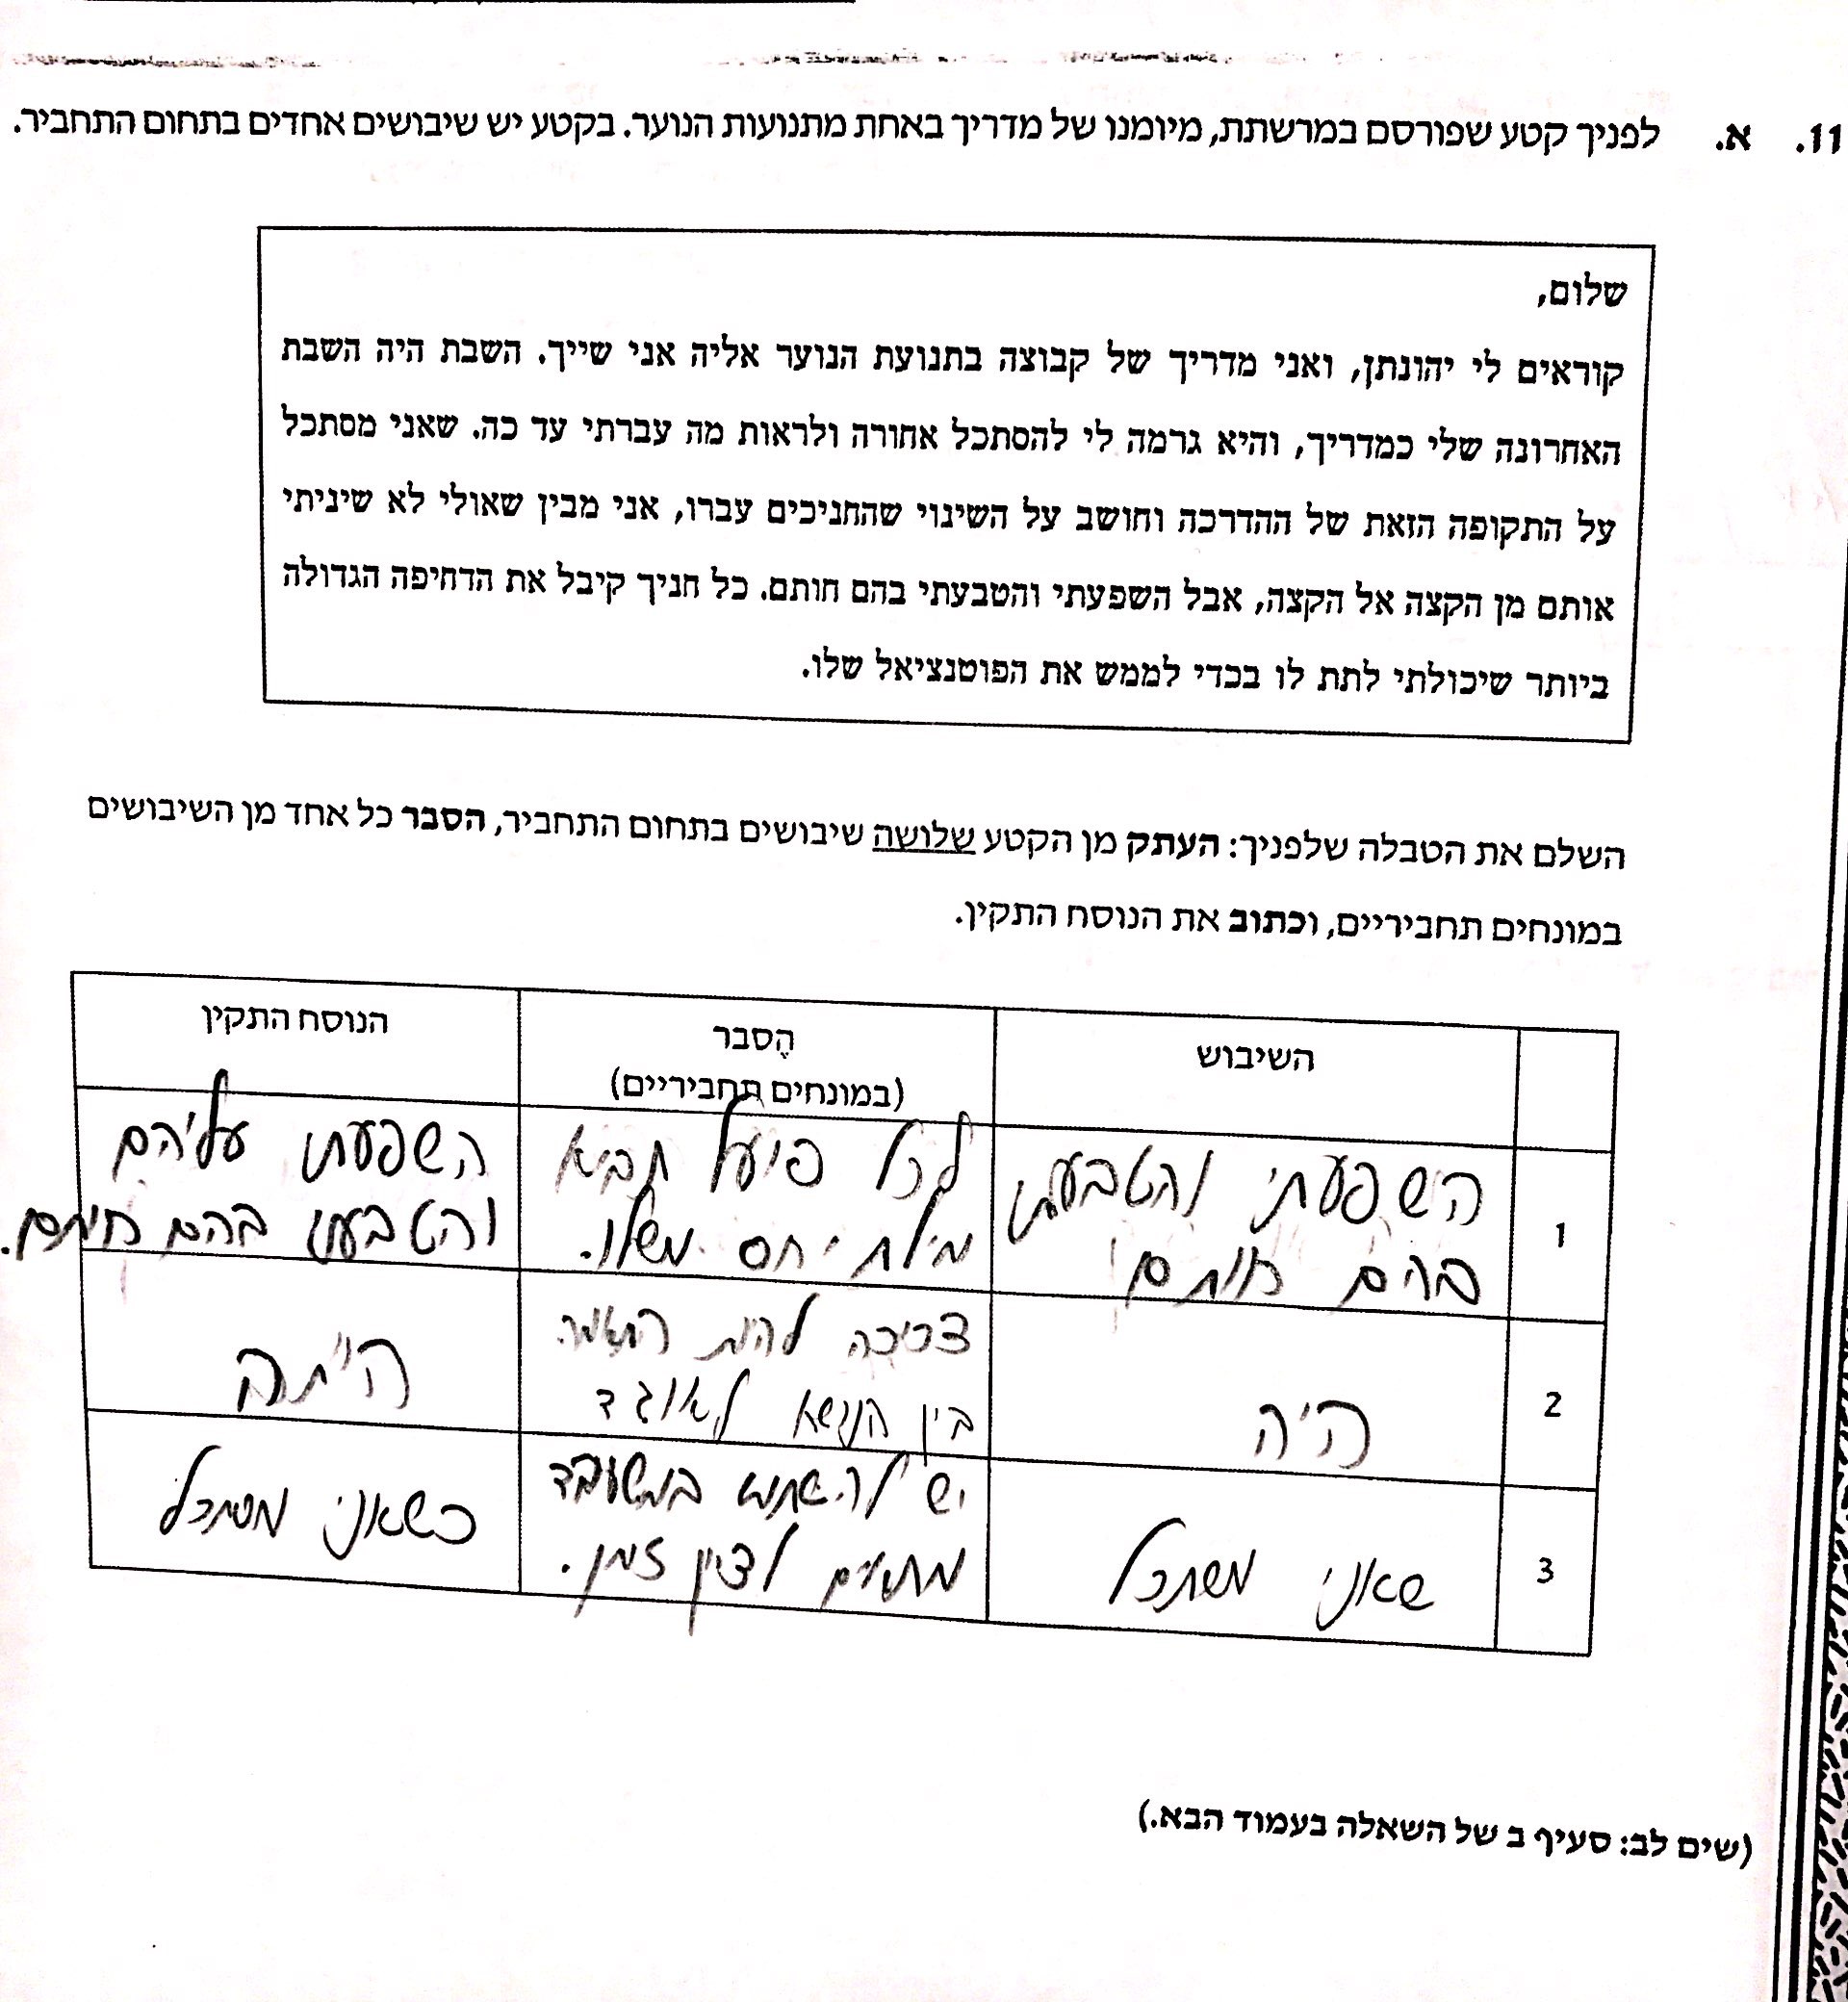 11. א. לפניך קטע שפורסם במרשתת, מיומנו של מדריך באחת מתנועות הנוער. בקטע יש שיבושים אחדים בתחום התחביר.
שלום,
קוראים לי יהונתן, ואני מדריך של קבוצה בתנועת הנוער אליה אני שייך. השבת היה השבת
האחרונה שלי כמדריך, והיא גרמה לי להסתכל אחורה ולראות מה עברתי עד כה. שאני מסתכל
על התקופה הזאת של ההדרכה וחושב על השינוי שהחניכים עברו, אני מבין שאולי לא שיניתי
אותם מן הקצה אל הקצה, אבל השפעתי והטבעתי בהם חותם. כל חניך קיבל את הדחיפה הגדולה
ביותר שיכולתי לתת לו בכדי לממש את הפוטנציאל שלו.
השלם את הטבלה שלפניך: העתק מן הקטע שלושה שיבושים בתחום התחביר, הסבר כל אחד מן השיבושים
במונחים תחביריים, וכתוב את הנוסח התקין.
השיבוש
הֶסבר
(במונחים תחביריים)
הנוסח התקין
1
השפעתי והטבעתי
בהם חותם
לכל פועל תביא
מילת יחס משלו.
השפעתי עליהם
והטבעתי בהם חותם.
2
היה
צריכה להיות התאמה
בין הנושא לאוגד
הייתה
3
שאני משתכל
יש להשתמש במשעבד
מתאים לציין זמן.
כשאני מסתכל
(שים לב: סעיף ב של השאלה בעמוד הבא.)